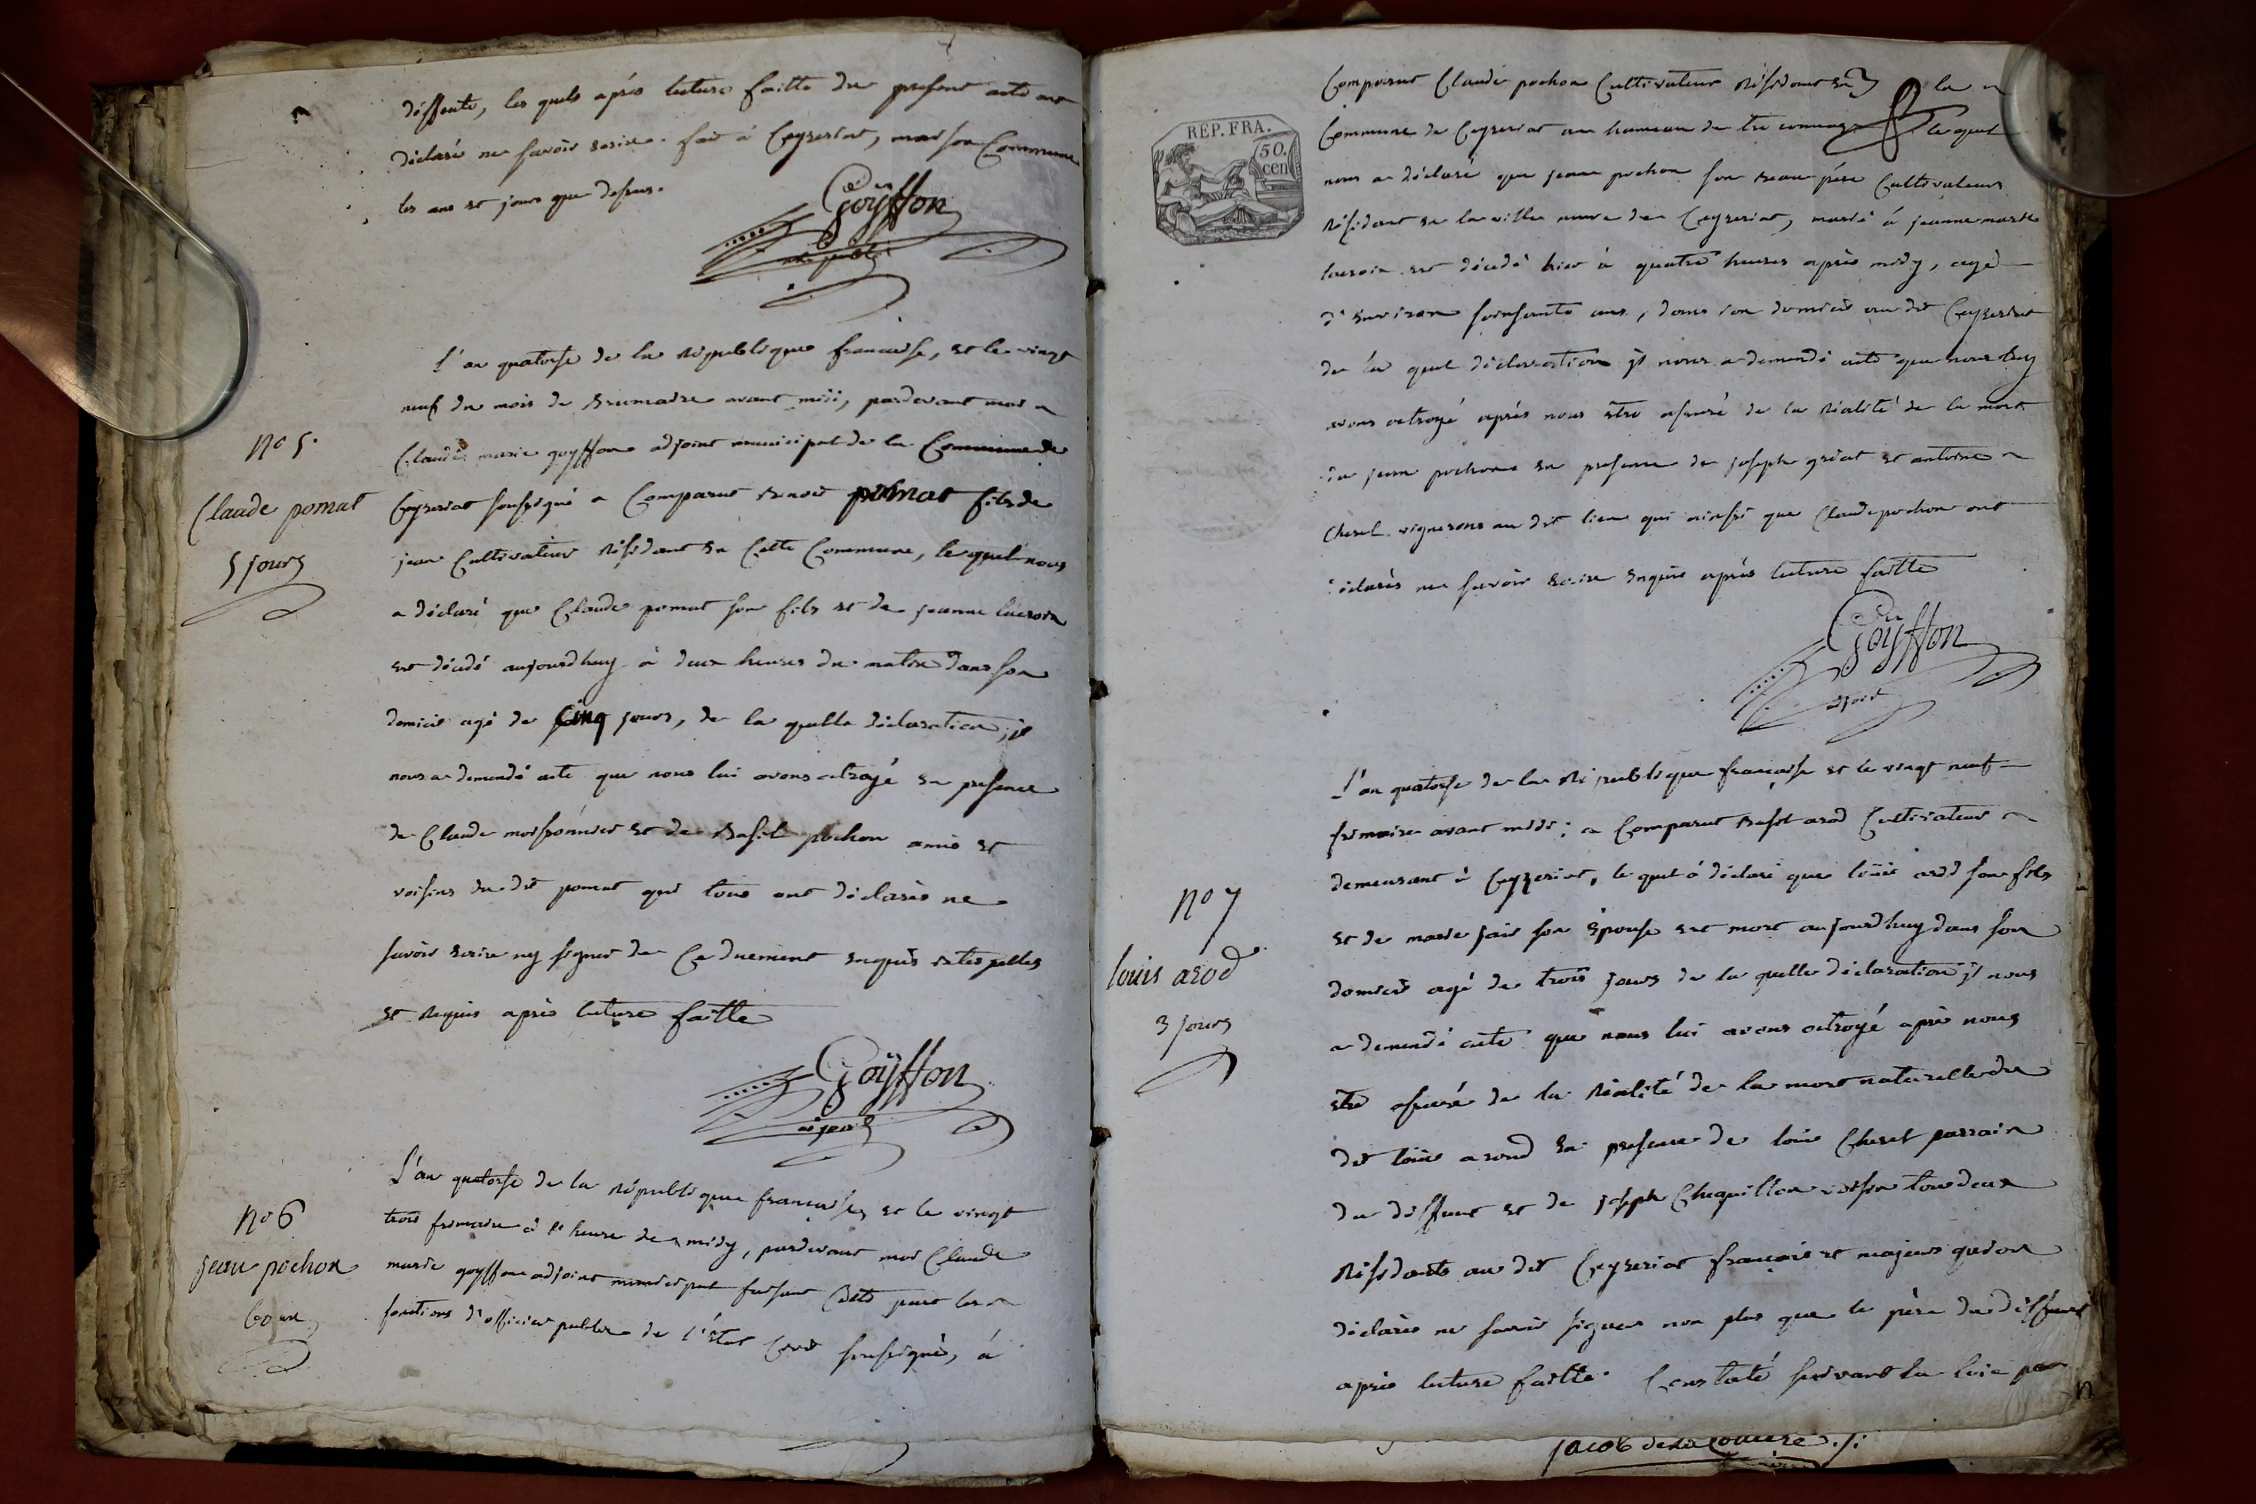 deffunte, les quels après lecture faitte du present acte ont
déclaré ne savoir ecrire. fait à Ceyzeriat, maison Commune
les ans et jours que dessus.
Goyffon
L'an quatorse de la République francaise, et le vingt
neuf du mois de Brumaire avant midi, pardevant moi
No 5.
Claude marie goyffon adjoint municipal de la Commune de
Claude pomat
Ceyzeriat soussigné a Comparut Benoit pomat fils de
5 jours
jean Cultivateur Résidant en Cette Commune, le quel nous
a déclaré que Claude pomat son fils et de jeanne lacroix
est décédé aujourdhuy à deux heures du matin dans son
domicil agé de Cinq jours, de la quelle déclaration, il
nous a demendé acte que nous lui avons octroyé en presence
de Claude moissonnier et de Basil pochon amis et
voisins du dit pomat qui tous ont déclarés ne
savoir ecrire ny signer de Ce duement enquis interpellés
et Requis après lecture faitte
Goyffon
adjoint
L'an quatorse de la République francaise, et le vingt
No 6
trois frimaire à l'heure de midy, pardevant moi Claude
jean pochon
marie goyffon adjoint municipal faisant les
60 ans
fonctions d'officier public de l'état Civil soussigné, à
REP. FRA.
50.
cen
Comparut Claude pochon Cultivateur Résidant en la
Commune de Ceyzeriat au hameau de le quel
nous a déclaré que jean pochon son beau père Cultivateur
Résidant en la ville neuve de Ceyzeriat, marié à jeanne marie
lacroix est décédé hier à quatre heures après midy, agé
d'environ soinsante ans, dans son domicil au dit Ceyzeriat
de la quel déclaration il nous a demendé acte que nous luy
avons octroyé après nous être assuré de la Réalité de la mort
du jean pochon en presence de joseph griat et antoine
Chevel vignerons au dit lieu qui ainssi que Claude pochon ont
déclarés ne savoir ecrire enquis après lecture faitte
Goyffon
adjoint
L'an quatorse de la République francaise et le vingt neuf
frimaire avant midi; a Comparut arod Cultivateur
demeurant à Ceyzeriat, le quel à déclaré que loüis arod son fils
No 7
et de marie son épouse est mort aujourdhuy dans son
louis arod
domicil agé de trois jours de la quelle déclaration il nous
3 jours
a demendé acte que nous lui avons octroyé après nous
être assuré de la Réalité de la mort naturelle du
dit loüis aroud en presence de loüis Chevel parrain
du deffunt et de joseph Chequillon voisin tous deux
Résidants au dit Ceyzeriat français et majeurs qui ont
déclarés ne savoir signer non plus que le père du deffunt
après lecture faitte. Constaté suivant la loix par
jacob dela Couttre